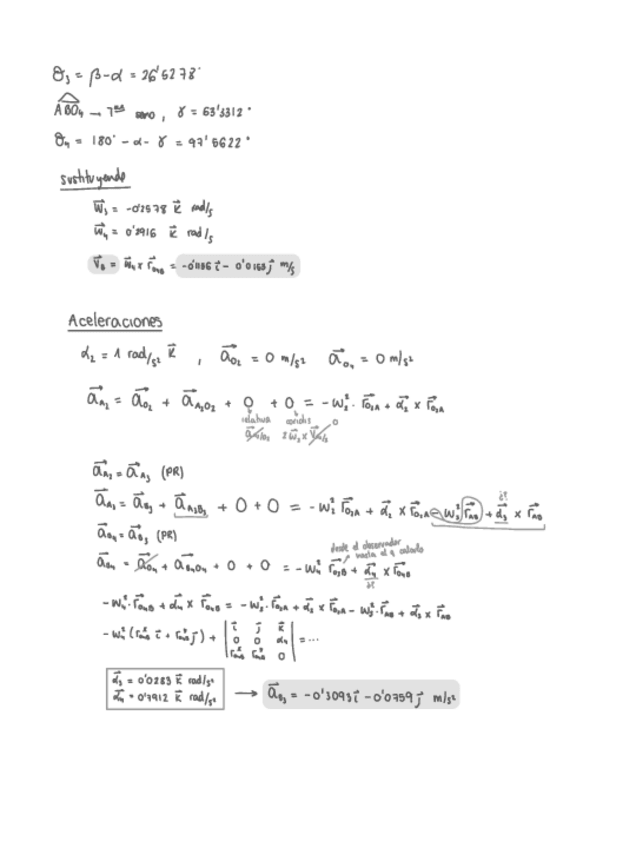 θ₃ = β-α = 26'5278°
ABO₄ → Tᵐᵃ seno , γ = 53'3312°
θ₄ = 180° - α - γ = 97'5622°
sustituyendo
w₃ = -0'2578 k rad/s
w₄ = 0'2916 k rad/s
V_B = w₄ x r_O₄B = -0'1186 i - 0'0153 j m/s
Aceleraciones
α₂ = 1 rad/s² k , a_O₂ = 0 m/s² a_O₄ = 0 m/s²
a_A₂ = a_O₂ + a_A₂O₂ + 0 + 0 = -w₂² · r_O₂A + α₂ x r_O₂A
relativa coriolis 0
a_A₂ = a_A₃ (PR)
a_A₃ = a_B₃ + a_A₃B₃ + 0 + 0 = -w₂² r_O₂A + α₂ x r_O₂A - w₃² r_AB + α₃ x r_AB
a_B₄ = a_B₃ (PR)
desde el observador hasta el q calculo
a_B₄ = a_O₄ + a_B₄O₄ + 0 + 0 = -w₄² r_O₄B + α₄ x r_O₄B
-w₄² · r_O₄B + α₄ x r_O₄B = -w₂² · r_O₂A + α₂ x r_O₂A - w₃² · r_AB + α₃ x r_AB
-w₄² (r_O₄Bˣ i + r_O₄Bʸ j) + | i j k ; 0 0 α₄ ; r_O₄Bˣ r_O₄Bʸ 0 | = ...
α₃ = 0'0283 k rad/s²
α₄ = 0'7912 k rad/s² → a_B₃ = -0'3093 i - 0'0759 j m/s²